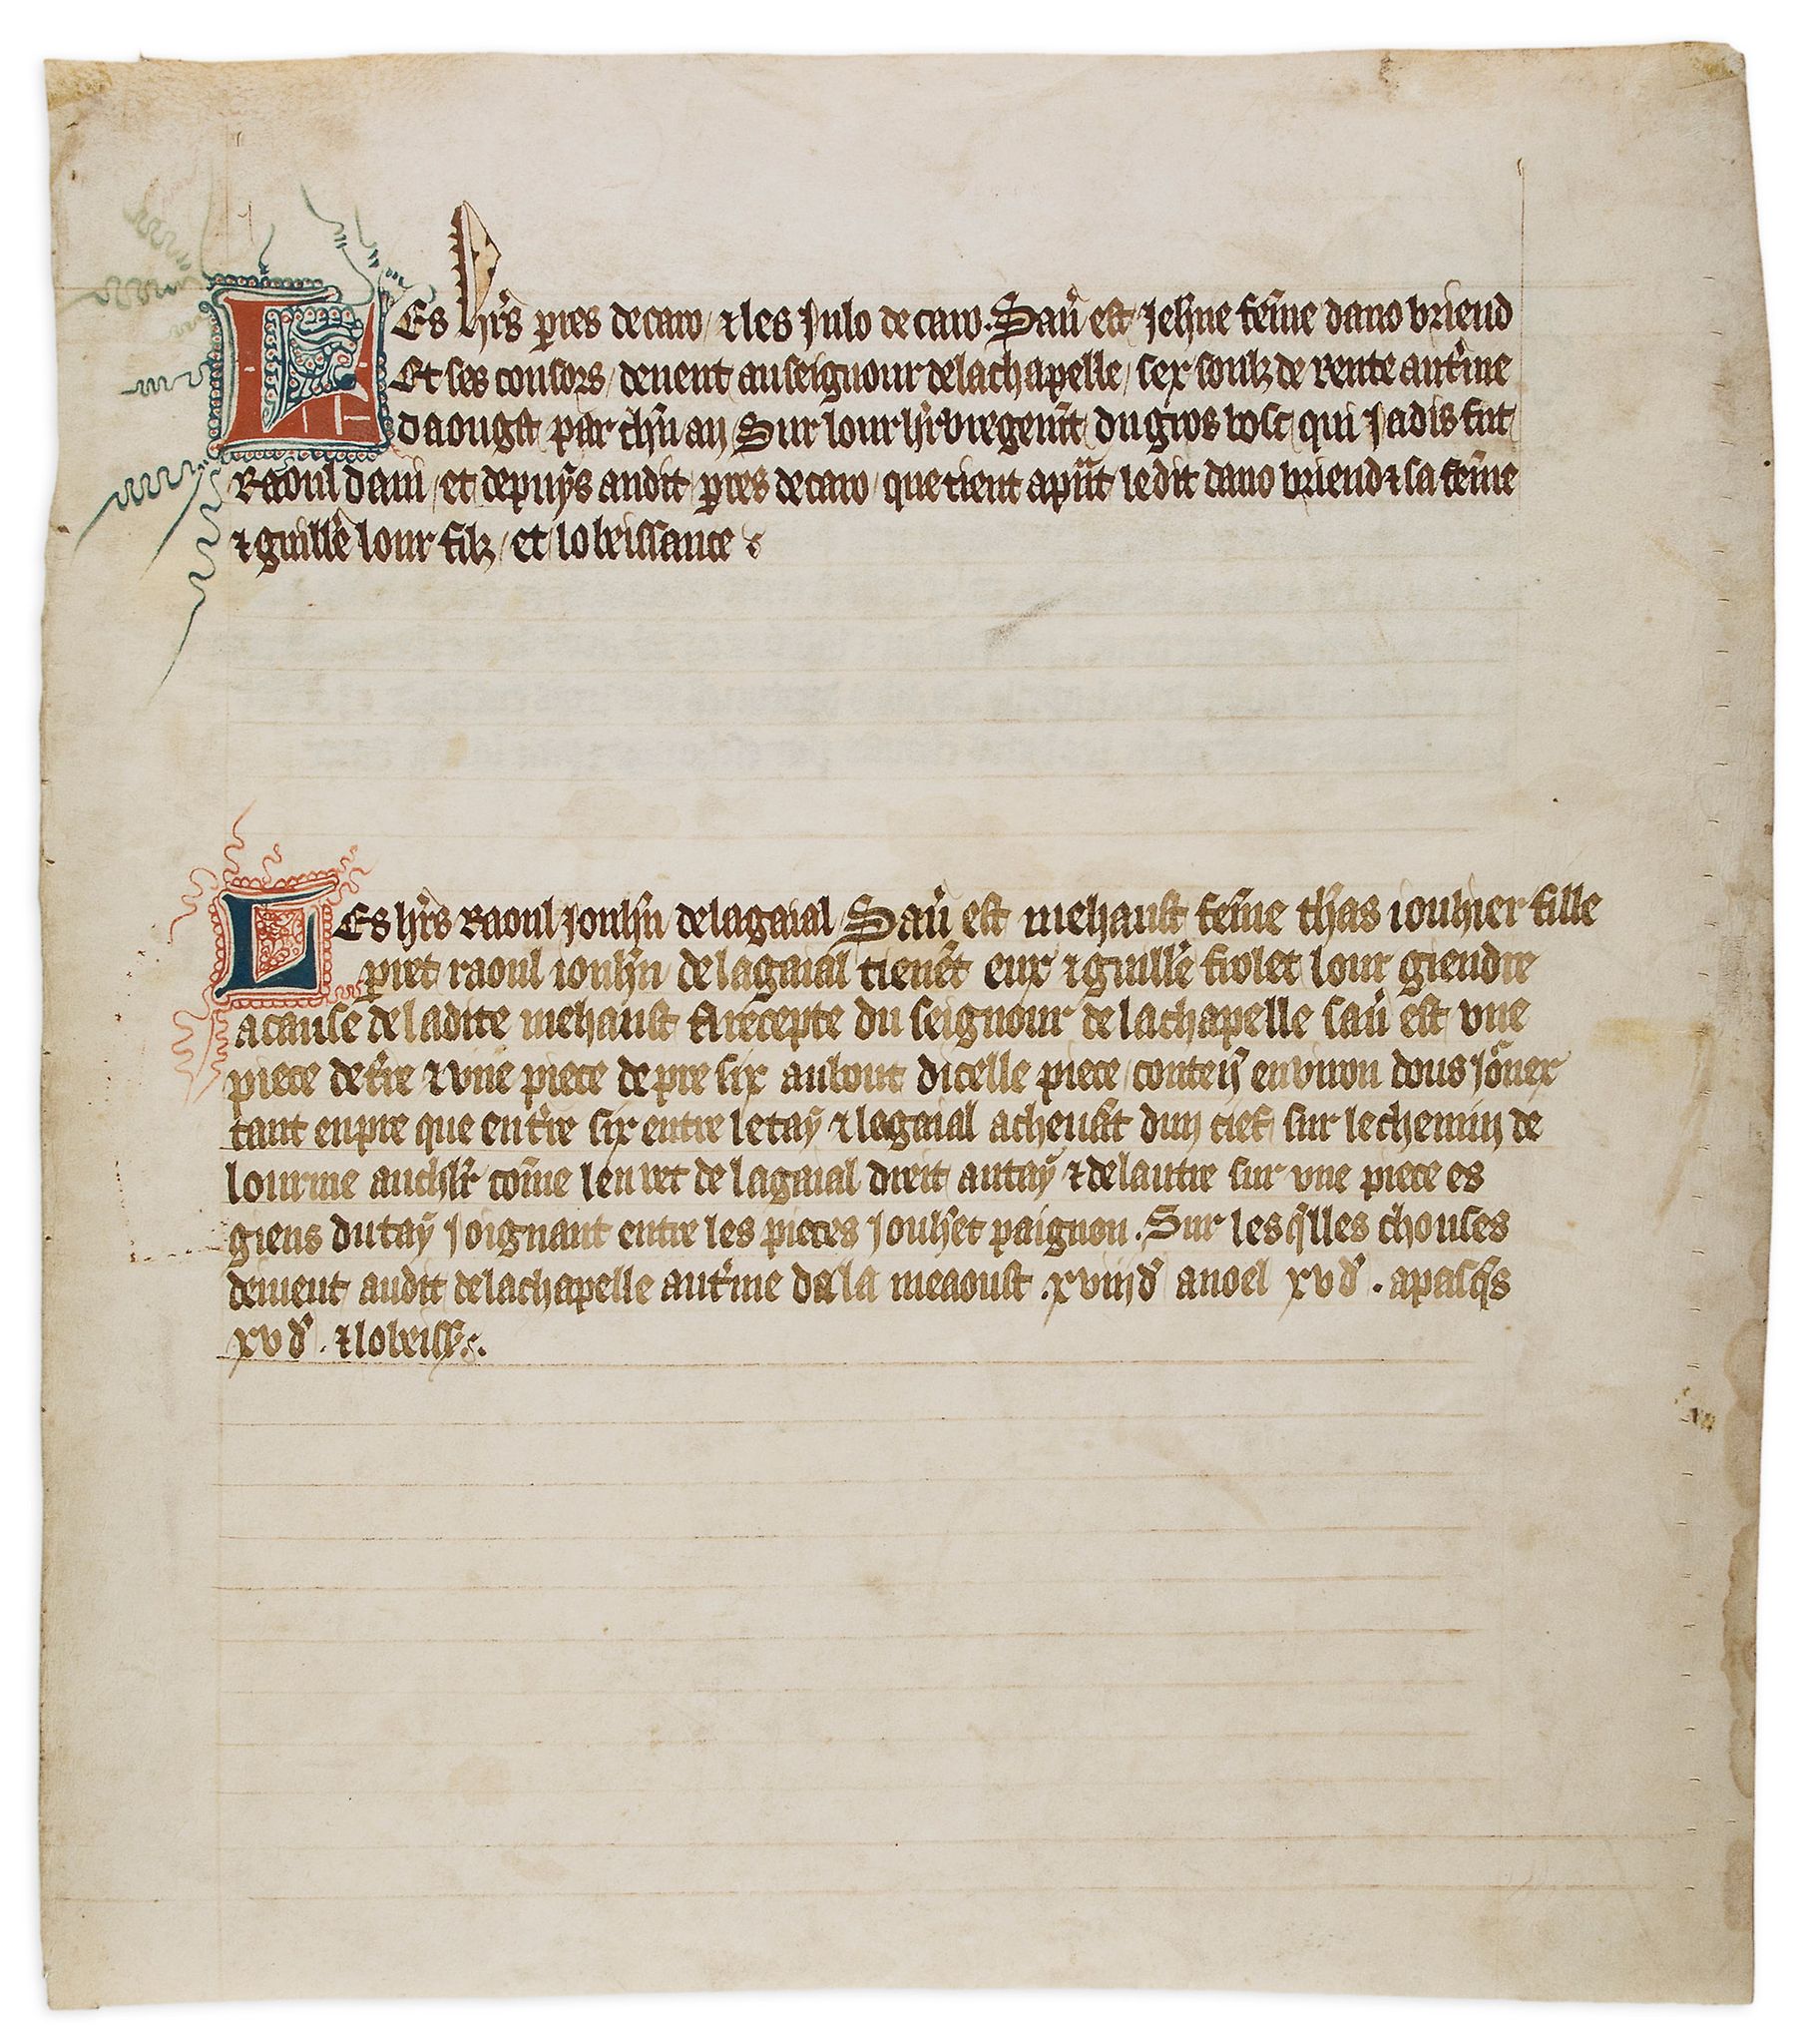 Les hr̄s pres de caro / ⁊ les Julo de caro. Sau̾ est Jehne fēme dano briend
Et ses consors / deuent au seignour de la chapelle / sex soulz de rente au t̾me
daougst par ch̄un an Sur lour h̄rbregem̄t du gros bosc qui Jadis fut
Raoul dani / et depuys audit pres de caro / que tient a p̄nt ledit dano briend ⁊ sa fēme
⁊ guille̾ lour filz / et lobeissance
Les hr̄s Raoul Jouhn̄ de la gaial Sau̾ est mehaust fēme th̄as iouhier fille
raoul iouhn̄ de la gaial tienēt eux ⁊ guille̾ fiolet lour giendre
a cause de ladite mehaust A recepte du seignour de la chapelle sau̾ est vne
piece de t̾re ⁊ vne piece de pre six au bout dicelle piece / conten̄ enuiron dous Jo͞uex
tant en pre que en t̾re six entre le tay ⁊ la gaial a cheuāt dun cief sur le chemin de
lourme co͞me len vet de la gaial dreit au tay ⁊ de lautre sur vne piece es
giens du tay Joignant entre les pieces Jouh̄et paignon. Sur les q̄lles chouses
deiuent audit de la chapelle au t̾me de la meaoust .xviij d̾ a noel xv d̾ . a pasq̄s
xv d̾ . ⁊ lobeiss̄.